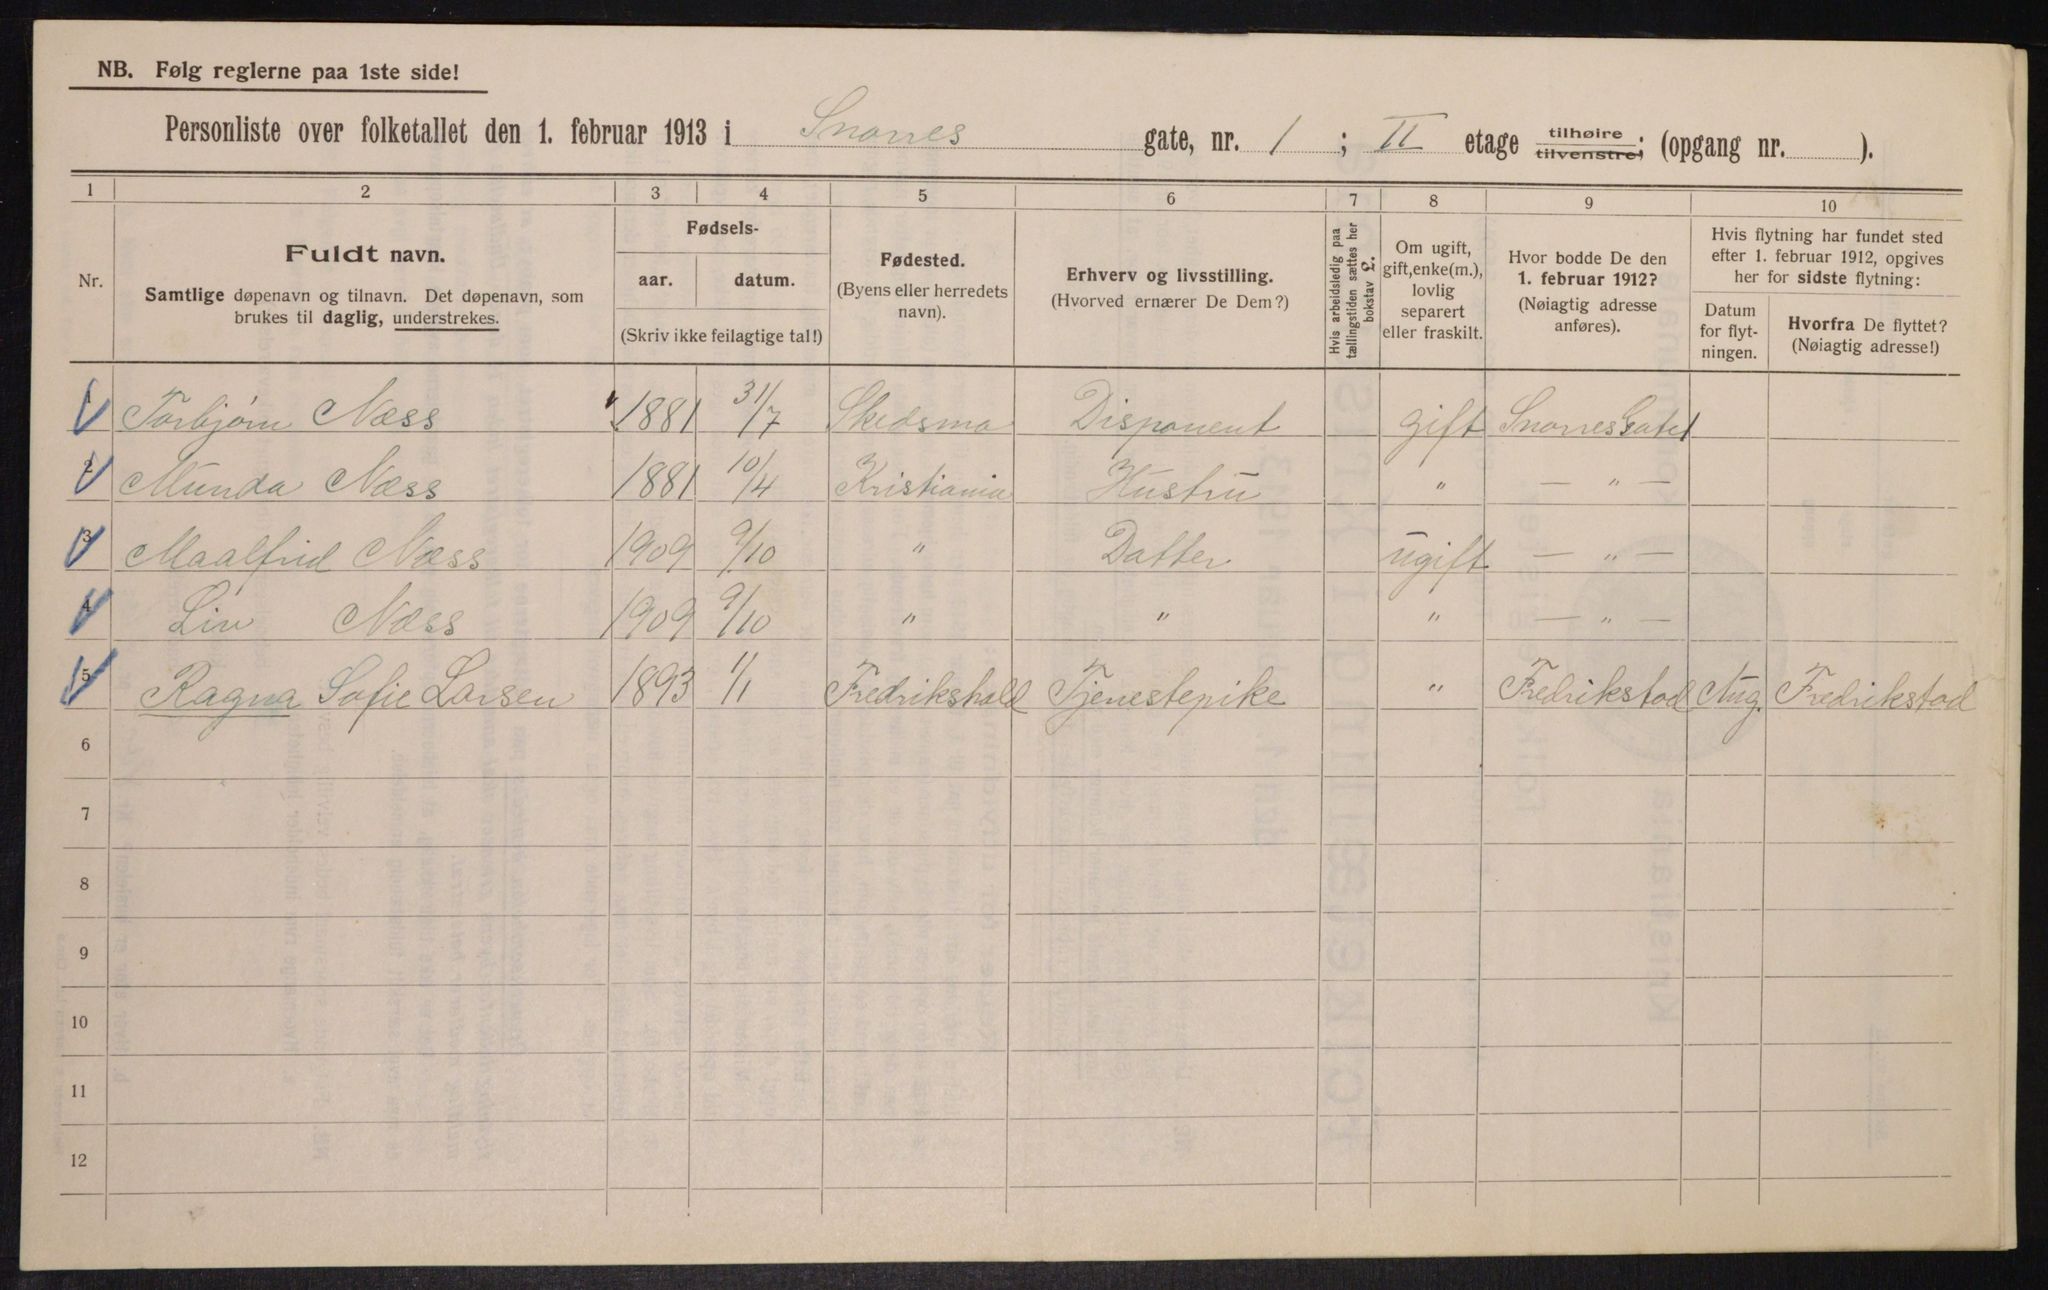 NB. Følg reglerne paa 1ste side!
Personliste over folketallet den 1. februar 1913 i Snorres gate, nr. 1 ; II etage tilhøire tilvenstre; (opgang nr. ).
1 2 3 4 5 6 7 8 9 10
Nr.
Fuldt navn.
Samtlige døpenavn og tilnavn. Det døpenavn, som
brukes til daglig, understrekes.
Fødsels-
aar. datum.
(Skriv ikke feilagtige tal!)
Fødested.
(Byens eller herredets
navn).
Erhverv og livsstilling.
(Hvorved ernærer De Dem?)
Hvis arbeidsledig paa
tællingstiden sættes her
bokstav £.
Om ugift,
gift, enke(m.),
lovlig
separert
eller fraskilt.
Hvor bodde De den
1. februar 1912?
(Nøiagtig adresse
anføres).
Hvis flytning har fundet sted
efter 1. februar 1912, opgives
her for sidste flytning:
Datum
for flyt-
ningen.
Hvorfra De flyttet?
(Nøiagtig adresse!)
1 Torbjørn Næss 1881 31/7 Skedsmo Disponent gift Snorres Gate 1
2 Munda Næss 1881 10/4 Kristiania Hustru " — " —
3 Maalfrid Næss 1909 9/10 " Datter ugift — " —
4 Liv Næss 1909 9/10 " " " — " —
5 Ragna Sofie Larsen 1893 1/1 Fredrikshald Tjenestepike " Fredrikstad Aug. Fredrikstad
6
7
8
9
10
11
12